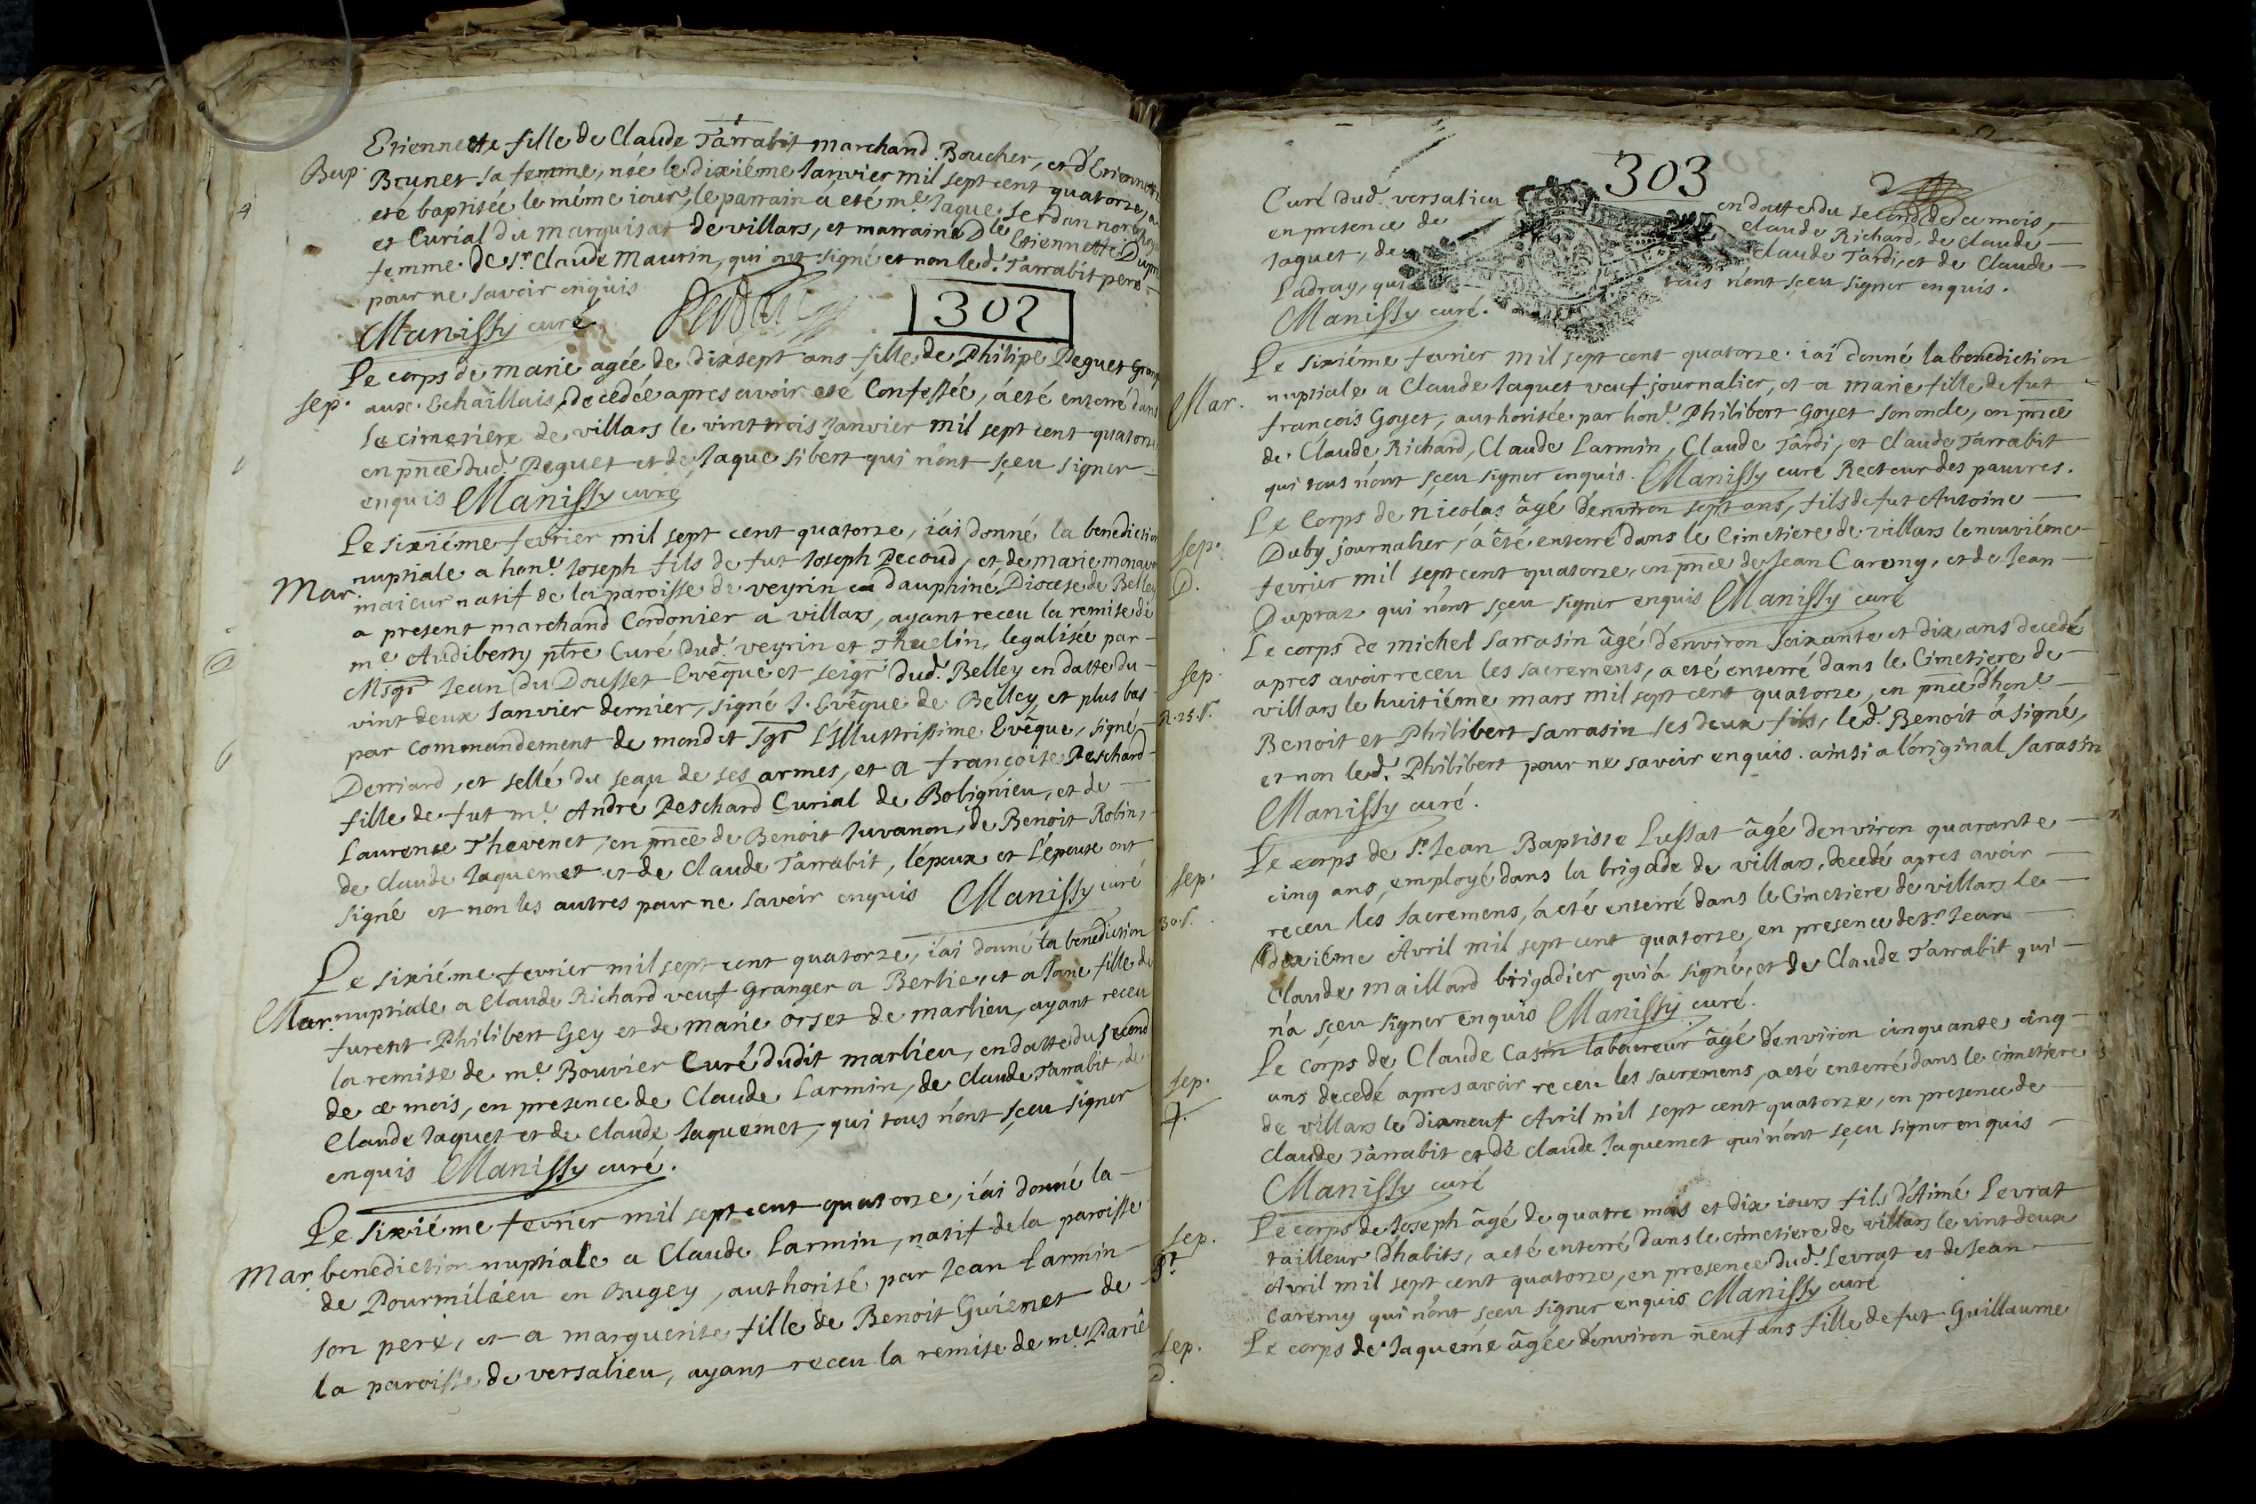 Etiennette fille de Claude Tarrabit marchand Boucher, et d'Etiennette
Bap. Brunet sa femme, née le dixiéme Janvier mil sept cent quatorze, a
eté baptisée le même iour, le parrain a été me. Jaque Serdan notaire
et Curial du marquisat de villars, et marraine Dle Etiennette Dupra
femme de Sr. Claude Maurin, qui ont signé et non led. Tarrabit pere
pour ne savoir enquis
Manissy curé
302
Le corps de marie agée de dixsept ans fille de Philipe Peguet Grang
sep. aux Echaillais, decedée apres avoir eté Confessée, a eté enterré dans
Le cimetiere de villars le vint trois Janvier mil sept cent quatorze
en pnce dud. Peguet et de Jaque Sibert qui n'ont sçeu signer
enquis Manissy curé
Le sixiéme fevrier mil sept cent quatorze, i'ai donné la benediction
nuptiale a honl. Joseph fils de fut Joseph Pecoud, et de marie monavon
Mar. maieur natif de la paroisse de veyrin en dauphiné Diocese de Belley
a present marchand Cordonier a villars, ayant receu la remise de
me. Audiberty ptre Curé dud. veyrin et Thuelin, legalisée par
Msgr Jean Du Dousset Evêque et seigr dud. Belley en datte du
vint deux Janvier dernier, signé J. Evêque de Belley, et plus bas
par commandement de mondit Sgr L'Illustrissime Evêque, signé
Derriard, et sellé du seau de ses armes, et a françoise Peschard
fille de fut me. André Peschard Curial de Bolignieu, et de
Laurense Thevenet, en pnce de Benoit Juvanon, de Benoit Robin,
de Claude Jaquemet et de Claude Tarrabit, l'époux et L'épouse ont
signé et non les autres pour ne savoir enquis Manissy curé
Le sixiéme fevrier mil sept cent quatorze, i'ai donné la benédiction
Mar. nuptiale a Claude Richard veuf Granger a Berlie, et a Jane fille de
furent Philibert Gey et de marie Orset de marlieu, ayant receu
la remise de me. Bouvier Curé dudit marlieu, en datte du second
de ce mois, en presence de Claude Larmin, de Claude Tarrabit, de
Claude Jaquet et de Claude Jaquemet, qui tous n'ont sçeu signer
enquis Manissy curé.
Le sixiéme fevrier mil sept cent quatorze, i'ai donné la
Mar. benediction nuptiale a Claude Larmin, natif de la paroisse
de Pourmilieu en Bugey, authorisé par Jean Larmin
son pere, et a marguerite fille de Benoit Guienet de
la paroisse de versalieu, ayant receu la remise de me. Paris
303
Curé dud. versalieu en datte du second de ce mois,
en presence de Claude Richard, de Claude
Jaquet, de Claude Tardi, et de Claude
Ladray, qui tous n'ont sçeu signer enquis.
Manissy curé.
Le sixiéme fevrier mil sept cent quatorze i'ai donné la benediction
Mar. nuptiale a Claude Jaquet veuf journalier, et a marie fille de fut
françois Goyet, authorisée par honl. Philibert Goyet son oncle, en pnce
de Claude Richard, Claude Larmin, Claude Tardi, et Claude Tarrabit
qui tous n'ont sçeu signer enquis. Manissy curé Recteur des pauvres.
Le Corps de nicolas âgé d'environ sept ans, fils de fut Antoine
sep. Duby journalier, a été enterré dans le Cimetiere de villars le neuviéme
D. fevrier mil sept cent quatorze, en pnce de Jean Caremy, et de Jean
Dupraz qui n'ont sçeu signer enquis Manissy curé
Le corps de michel Sarrasin âgé d'environ soixante et dix ans decedé
sep. apres avoir receu les sacremens, a eté enterré dans le Cimetiere de
R. 25 s. villars le huitiéme mars mil sept cent quatorze, en pnce d'honl.
Benoit et Philibert Sarrasin ses deux fils, led. Benoit a signé,
et non led. Philibert pour ne savoir enquis. ainsi a l'original Sarasin
Manissy curé.
Le corps de Sr. Jean Baptiste Lussat âgé d'environ quarante
sep. cinq ans, employé dans la brigade de villars, decedé apres avoir
30 s. receu les sacremens, a eté enterré dans le Cimetiere de villars le
dixiéme Avril mil sept cent quatorze, en presence de Sr. Jean
Claude Maillard brigadier qui a signé, et de Claude Tarrabit qui
n'a sçeu signer enquis Manissy curé.
Le corps de Claude Casin laboureur âgé d'environ cinquante cinq
sep. ans decedé apres avoir receu les sacremens, a eté enterré dans le cimetiere
de villars le dixneuf Avril mil sept cent quatorze, en presence de
Claude Tarrabit et de Claude Jaquemet qui n'ont sçeu signer enquis
Manissy curé
Le corps de Joseph âgé de quatre mois et dix iours fils d'Aimé Levrat
sep. tailleur d'habits, a eté enterré dans le cimetiere de villars le vint deux
Avril mil sept cent quatorze, en presence dud. Levrat et de Jean
Caremy qui n'ont sçeu signer enquis Manissy curé
sep. Le corps de Jaquéme âgée d'environ neuf ans fille de fut Guillaume
D.